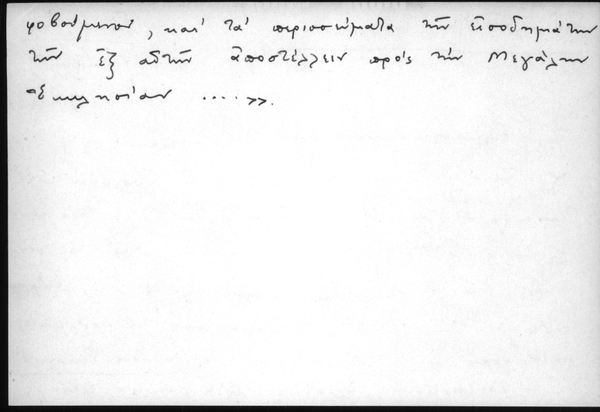 φοβούμενοι, καὶ τὰ περισσεύματα τῶν εἰσοδημάτων
τῶν ἐξ αὐτῶν ἀποστέλλειν πρὸς τὴν Μεγάλην
Ἐκκλησίαν ....».